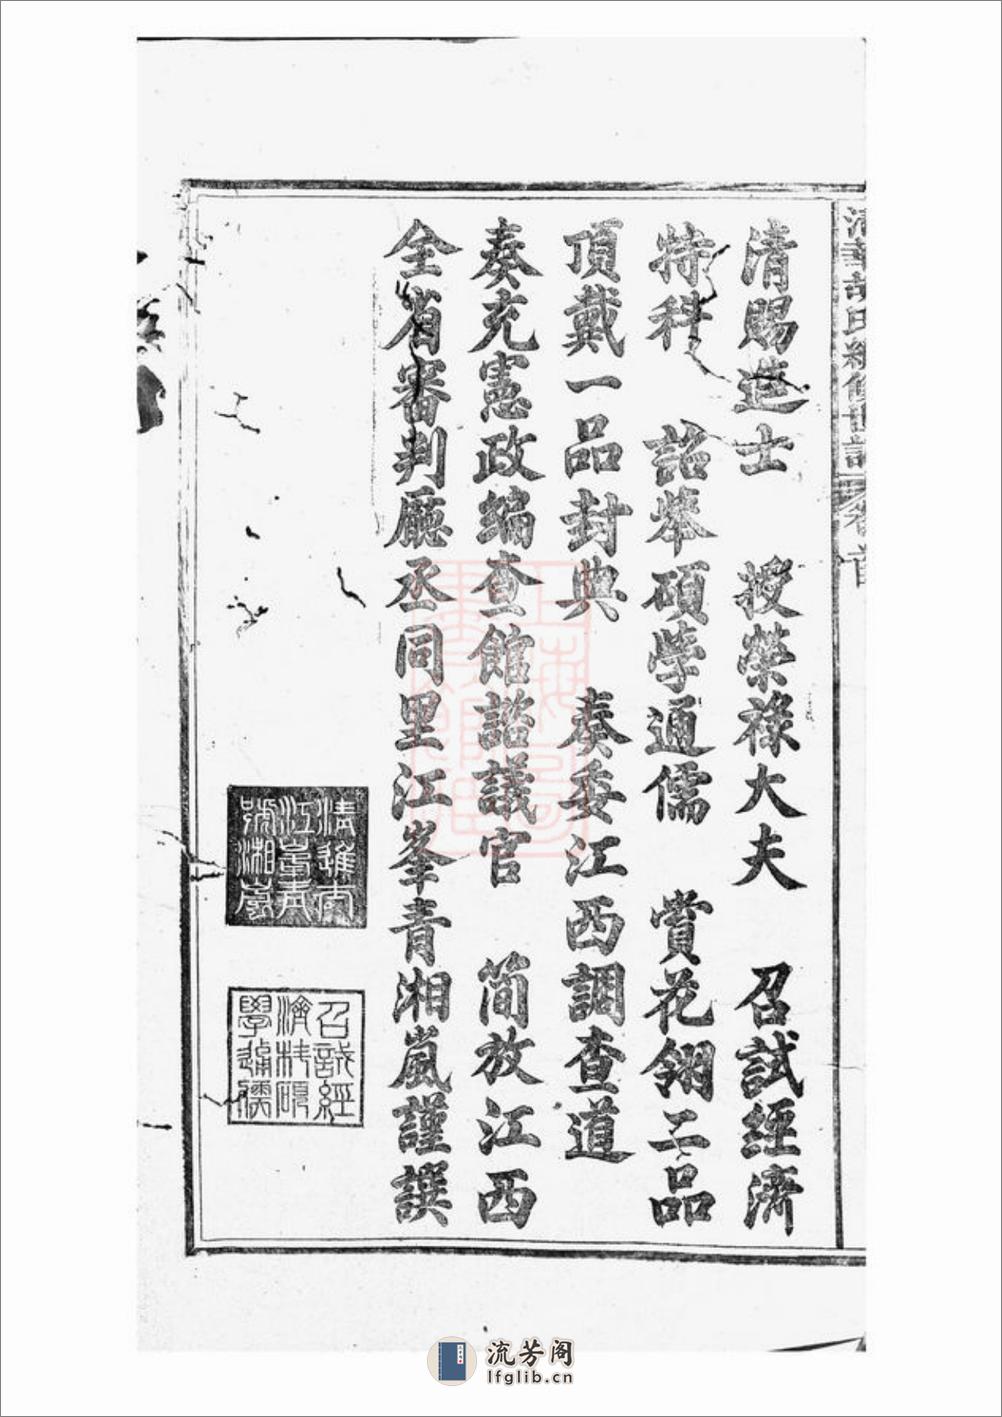 清華胡氏統修世譜 卷首
清賜進士 授榮祿大夫 召試經濟
特科 詔舉碩學通儒 賞花翎二品
頂戴一品封典 奏委江西調查道
奏充憲政編查館諮議官 簡放江西
全省審判廳丞同里江峯青湘嵐謹譔
清進士
江峯青
號湘嵐
召試經
濟特碩
學通儒
流芳阁
lfglib.cn